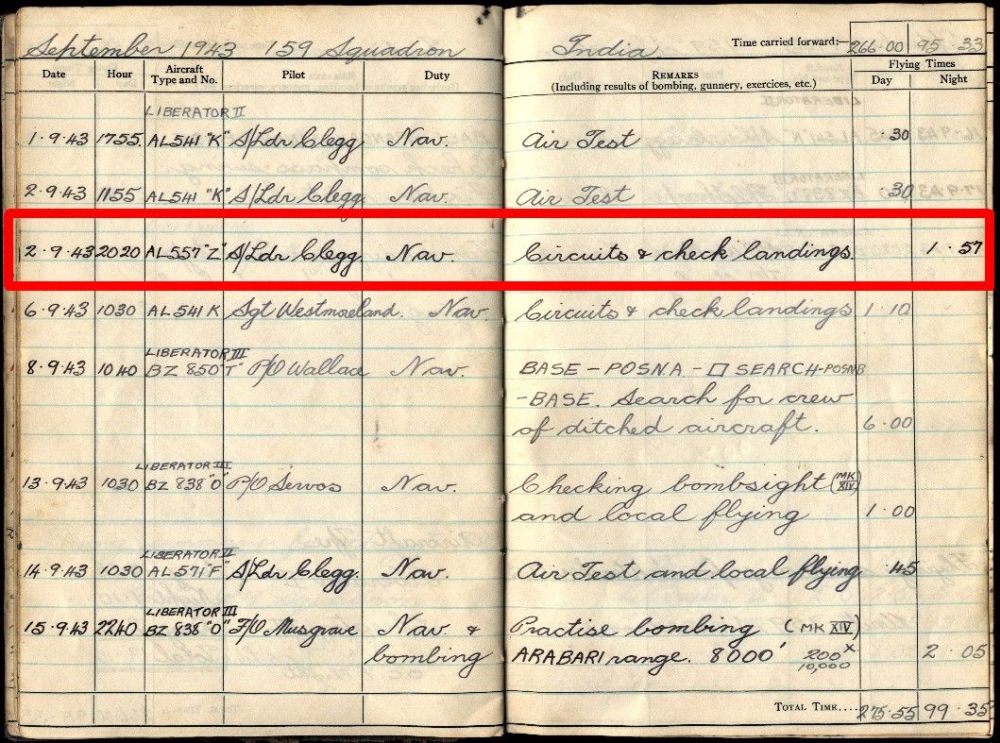 September 1943 159 Squadron India Time carried forward:— 266·00 95·33
Date Hour Aircraft Type and No. Pilot Duty REMARKS (Including results of bombing, gunnery, exercices, etc.) Flying Times Day Night
LIBERATOR II
1·9·43 1755 AL541 "K" S/Ldr Clegg Nav. Air Test ·30
2·9·43 1155 AL541 "K" S/Ldr Clegg Nav. Air Test 30
2·9·43 2020 AL557 "Z" S/Ldr Clegg Nav. Circuits & check landings. 1·57
6·9·43 1030 AL541 K Sgt Westmoreland. Nav. Circuits & check landings 1·10
LIBERATOR III
8·9·43 1040 BZ 850 "T" P/O Wallace Nav. BASE – POSNA. – □ SEARCH – POSNB
– BASE. Search for crew
of ditched aircraft. 6·00
LIBERATOR III
13·9·43 1030 BZ 838 "O" P/O Servos Nav. Checking bombsight (MK XIV)
and local flying 1·00
LIBERATOR II
14·9·43 1030 AL571 "F" S/Ldr Clegg. Nav. Air Test and local flying ·45
LIBERATOR III
15·9·43 2240 BZ 838 "O" F/O Musgrave Nav. & Practise bombing (MK XIV)
bombing ARABARI range. 8000' 200x 10,000 2·05
TOTAL TIME.... 275·55 99·35